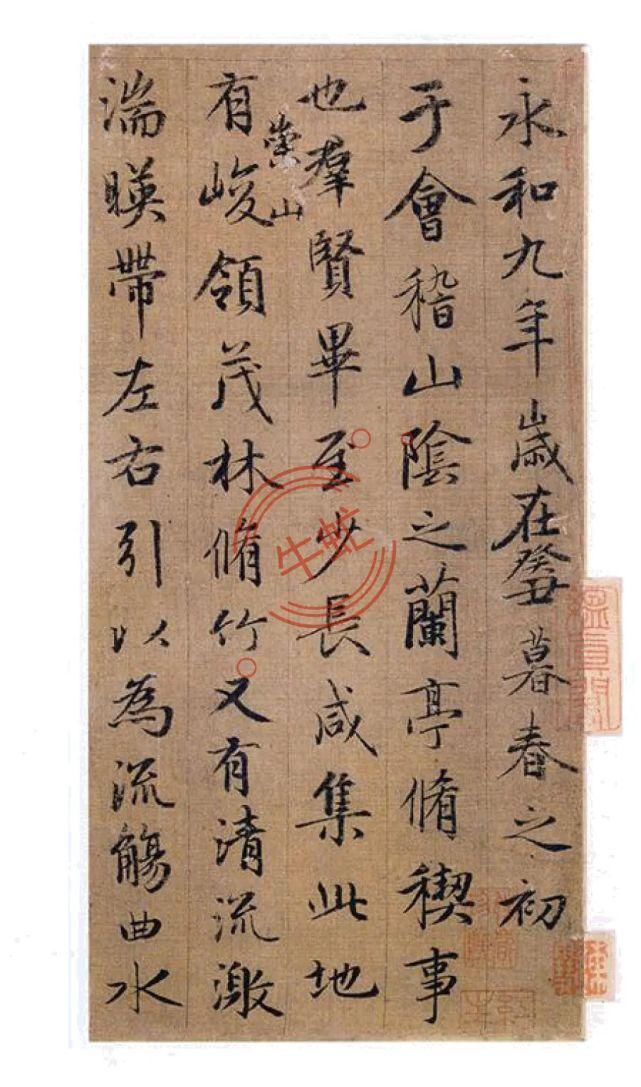 永和九年歲在癸丑暮春之初
于會稽山陰之蘭亭脩稧事
也羣賢畢至少長咸集此地
有崇山峻領茂林脩竹又有清流激
湍暎帶左右引以為流觴曲水
牛蛇